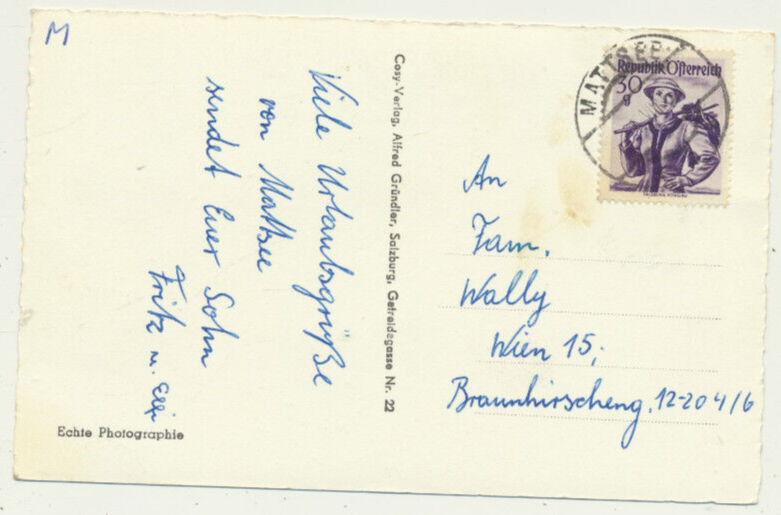 M
Viele Urlaubsgrüße
von Mattsee
sendet Euer Sohn
Fritz u. Elfi
Echte Photographie
Cosy-Verlag, Alfred Gründler, Salzburg, Getreidegasse Nr. 22
MATTSEE
Republik Österreich
30
g
An
Fam.
Wally
Wien 15;
Braunhirscheng. 12-20 4/6